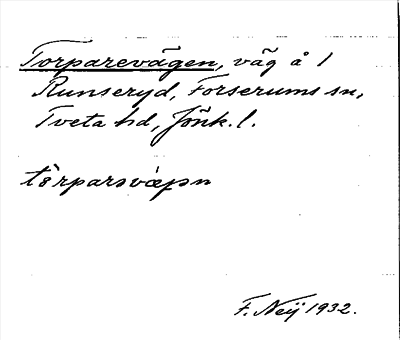 Torparevägen, väg å 1
Runseryd, Forserums sn,
Tveta hd, Jönk. l.
F. Neij 1932.